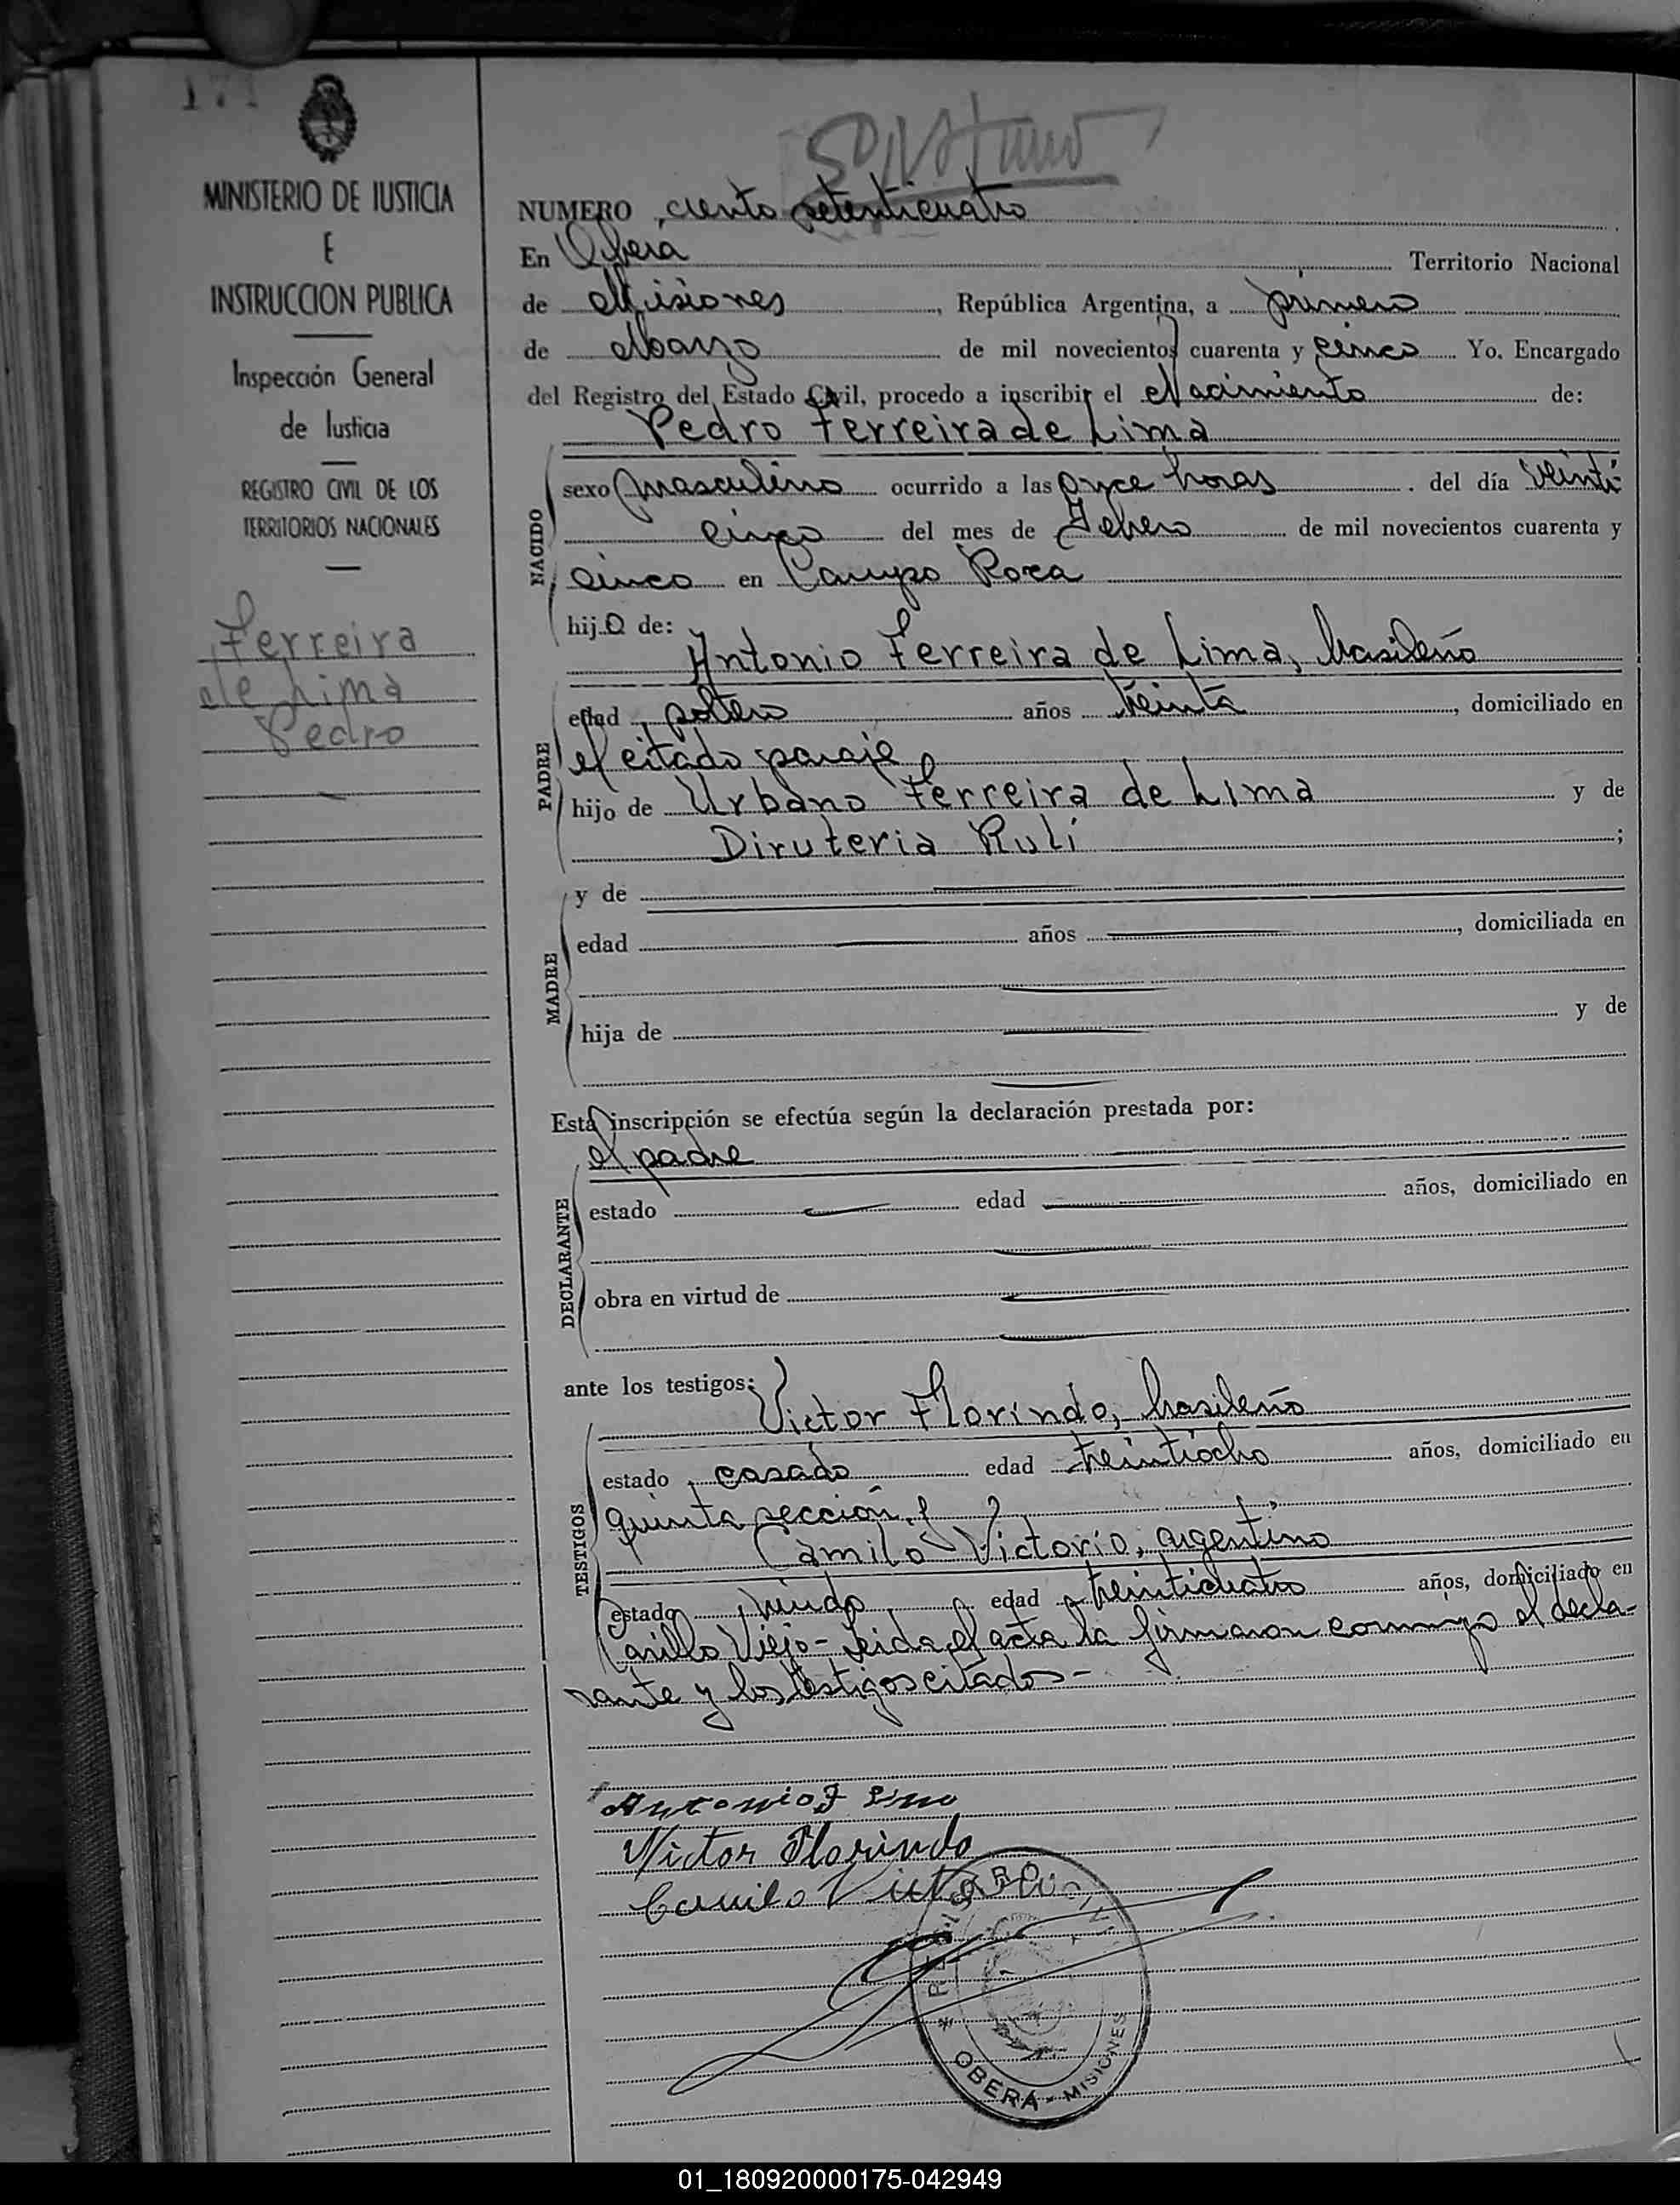 171
MINISTERIO DE JUSTICIA
E
INSTRUCCION PUBLICA
Inspección General
de Justicia
REGISTRO CIVIL DE LOS
TERRITORIOS NACIONALES
Ferreira
de Lima
Pedro
NUMERO ciento setenticuatro
En Oberá Territorio Nacional
de Misiones, República Argentina, a primero
de Marzo de mil novecientos cuarenta y cinco Yo. Encargado
del Registro del Estado Civil, procedo a inscribir el Nacimiento de:
Pedro Ferreira de Lima
NACIDO
sexo masculino ocurrido a las once horas . del día veinti
cinco del mes de Febrero de mil novecientos cuarenta y
cinco en Campo Roca
hijo de:
Antonio Ferreira de Lima, brasileño
PADRE
edad, soltero años treinta, domiciliado en
el citado paraje
hijo de Urbano Ferreira de Lima y de
Diruteria Ruli ;
MADRE
y de
edad años , domiciliada en
hija de y de
Esta inscripción se efectúa según la declaración prestada por:
el padre
DECLARANTE
estado edad años, domiciliado en
obra en virtud de
ante los testigos:
Victor Florindo, brasileño
TESTIGOS
estado casado edad treintiocho años, domiciliado en
quinta sección, y
Camilo Victorio, argentino
estado viudo edad treinticuatro años, domiciliado en
Viejo - Leida el acta la firmaron conmigo el decla-
rante y los testigos citados -
Antonio F Lima
Victor Florindo
Camilo Victorio
REGISTRO CIVIL
OBERÁ - MISIONES
01_180920000175-042949